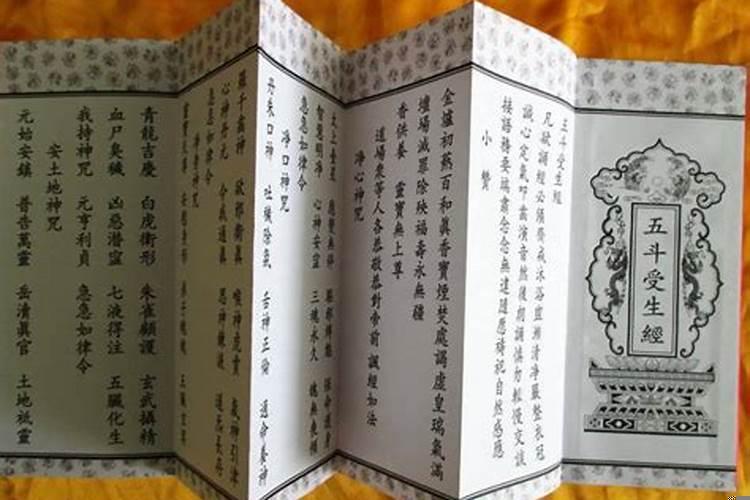 五斗受生經
五斗受生經
凡欲誦經必須齋戒沐浴
清淨嚴整衣冠
誠心定氣叩齒演音然後朗誦慎勿輕慢交談
接語務要端肅念念無違隨應禱祀自然感應
小贊
金爐初爇百和真香寶煙焚處謁虛皇瑞氣滿
壇場滅罪除殃福壽永無疆
香供養 靈寶無上尊
道場衆等人各恭敬恭對帝前 誦經如法
淨心神咒
太上臺星 應變無停
智慧明淨 心神安寧 三魂永久
急急如律令
淨口神咒
丹朱口神 吐穢除氛 舌神正倫 通命養神
羅千齒神 卻邪衛真 喉神虎賁 氣神引津
心神丹元 令我通真 思神鍊液 道炁長存
急急如律令
淨身神咒
青龍吉慶 白虎衛形 朱雀顧護 玄武攝精
血尸臭穢 凶惡潛寧 七液得注 五臟化生
我持神咒 元亨利貞 急急如律令
安土地神咒
元始安鎮 普告萬靈 岳瀆真官 土地祗靈